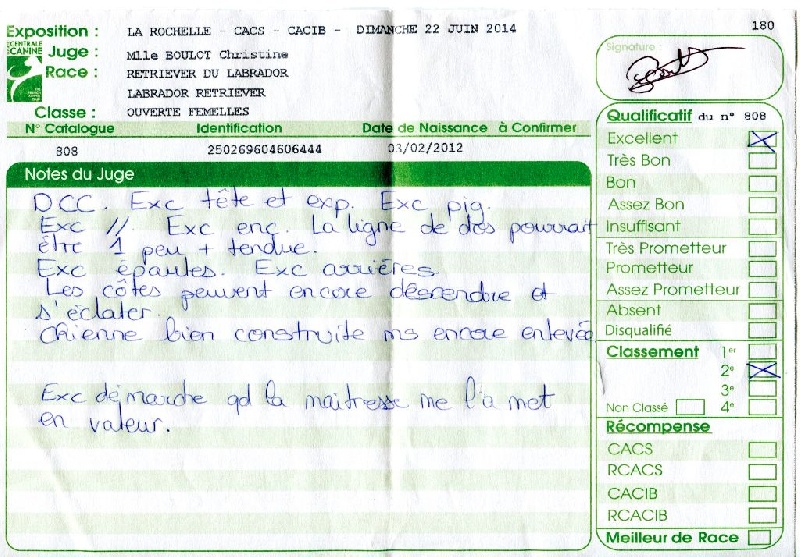 180
Exposition : LA ROCHELLE - CACS - CACIB - DIMANCHE 22 JUIN 2014
CENTRALE CANINE
Juge : Mlle BOULCT Christine
Race : RETRIEVER DU LABRADOR
LABRADOR RETRIEVER
Classe : OUVERTE FEMELLES
N° Catalogue Identification Date de Naissance à Confirmer
808 250269604606444 03/02/2012
Notes du Juge
DCC. Exc tête et exp. Exc pig.
Exc // Exc enc. La ligne de dos pourrait
être 1 peu + tendue.
Exc épaules. Exc arrières.
Les côtes peuvent encore descendre et
s'éclater.
Chienne bien construite ms encore enlevée
Exc démarche qd la maitresse me l'a met
en valeur.
Signature :
Qualificatif du n° 808
Excellent
Très Bon
Bon
Assez Bon
Insuffisant
Très Prometteur
Prometteur
Assez Prometteur
Absent
Disqualifié
Classement 1er
2e
3e
Non Classé 4e
Récompense
CACS
RCACS
CACIB
RCACIB
Meilleur de Race